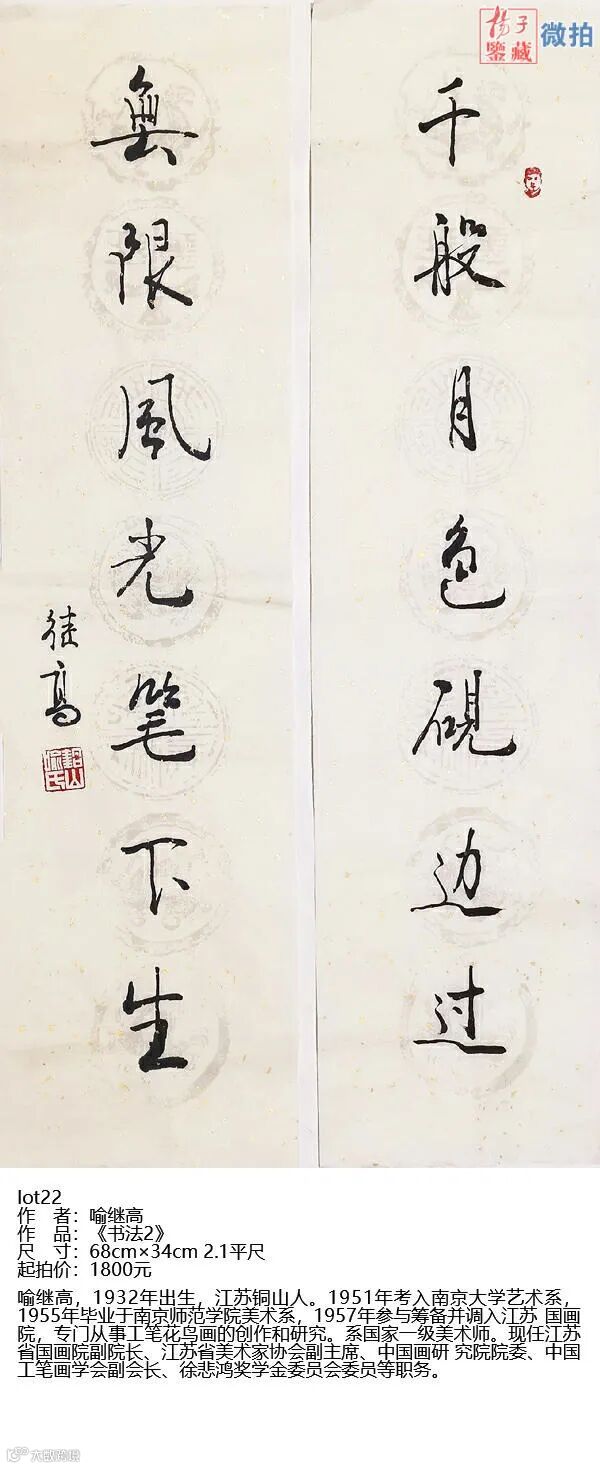 杨子
鉴藏
微拍
千般月色砚边过
無限風光笔下生
继高
lot22
作　者：喻继高
作　品：《书法2》
尺　寸：68cm×34cm 2.1平尺
起拍价：1800元
喻继高，1932年出生，江苏铜山人。1951年考入南京大学艺术系，
1955年毕业于南京师范学院美术系，1957年参与筹备并调入江苏 国画
院，专门从事工笔花鸟画的创作和研究。系国家一级美术师。现任江苏
省国画院副院长、江苏省美术家协会副主席、中国画研 究院院委、中国
工笔画学会副会长、徐悲鸿奖学金委员会委员等职务。
大数跨境